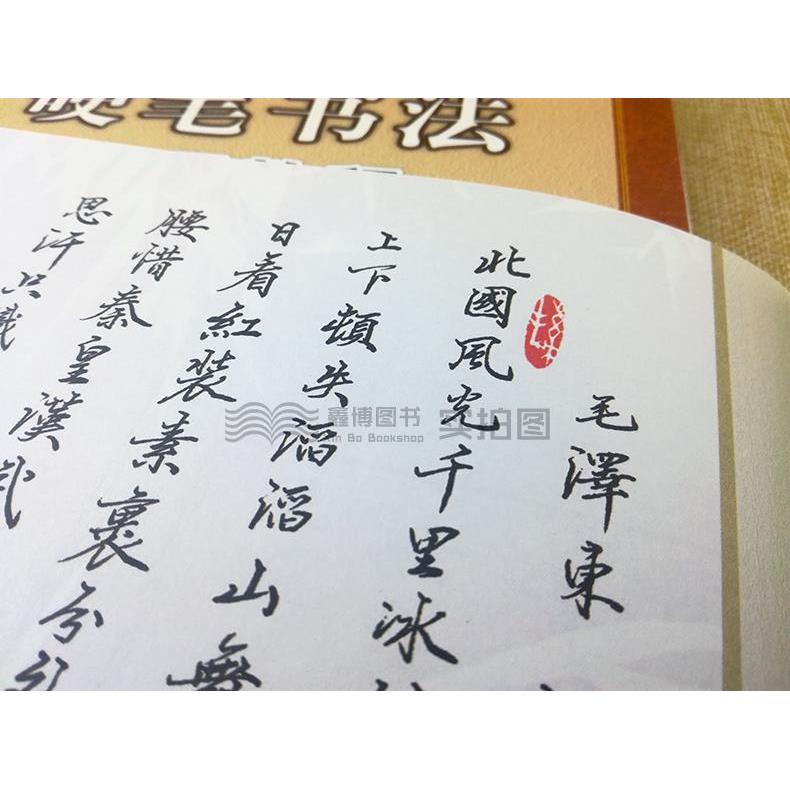 硬笔书法
毛澤東
北國風光千里冰
上下頓失滔滔山
日看紅装素裹分
腰惜秦皇漢武
思汗只識
鑫博图书 实拍图
Xin Bo Bookshop